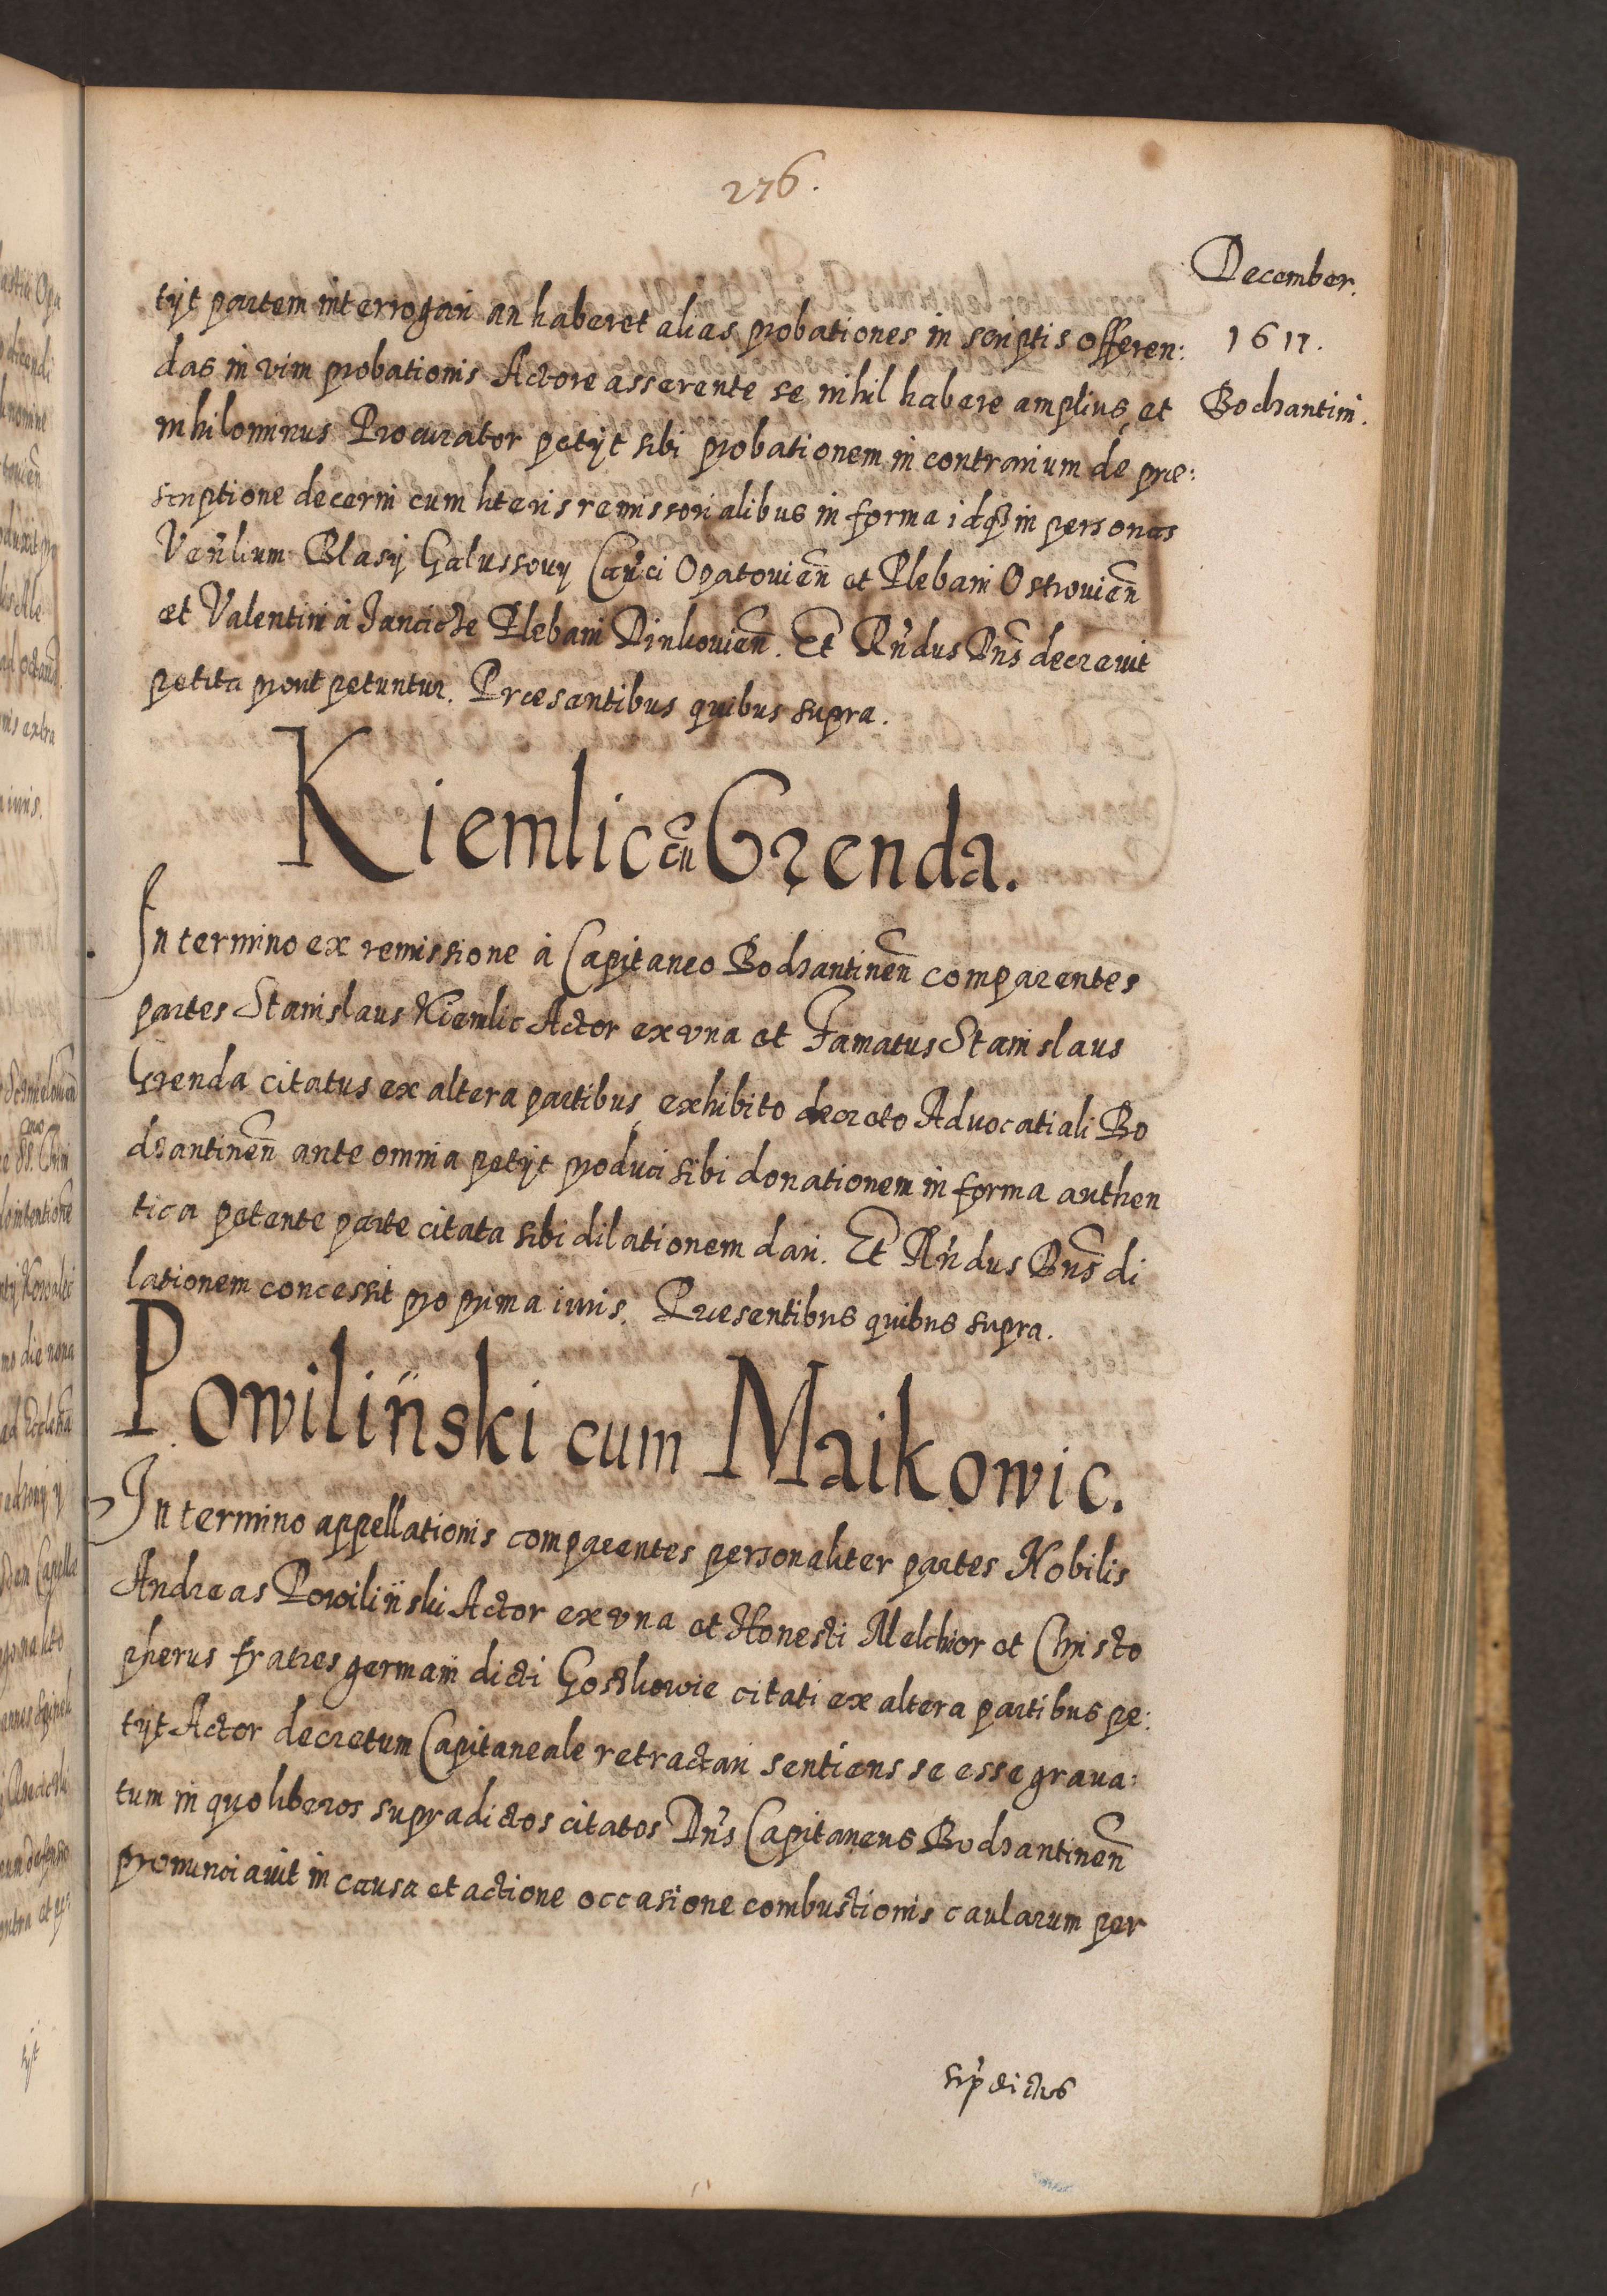 276.
December.
1617.
Bodzantini.
tÿt partem interrogari an haberet alias probationes in scriptis offeren:
das in vim probationis Actore asserente se nihil habere amplius, et
nihilominus Procurator petÿt sibi probationem in contrarium de præ:
scriptione decerni cum literis remissorialibus in forma idq3 in personas
Venlium Blasÿ Galussouÿ Canci Opatouien et Plebani Ostrouien
et Valentini à Jancicze Plebani Dinkouien. Et Rndus Dns decrevit
petita prout petuntur. Præsentibus quibus supra.
Kiemlic cu Grenda.
In termino ex remissione à Capitaneo Bodzantinen comparentes
partes Stanislaus Kiemlic Actor ex vna et Famatus Stanislaus
Grenda citatus ex altera partibus, exhibito decreto Advocatiali Bo
dzantinen ante omnia petÿt produci sibi donationem in forma authen
tica petente parte citata sibi dilationem dari. Et Rndus Dns di
lationem concessit pro prima iuris. Præsentibus quibus supra.
Powilinski cum Maikowic.
In termino appellationis comparentes personaliter partes Nobilis
Andreas Powilinski Actor ex vna et Honesti Melchior et Christo
pherus fratres germani dicti citati ex altera partibus pe:
tÿt Actor decretum Capitaneale retractari sentiens se esse graua:
tum in quo liberos supradictos citatos Dns Capitaneus Bodzantinen
pronunciauit in causa et actione occasione combustionis caularum per
supdictos